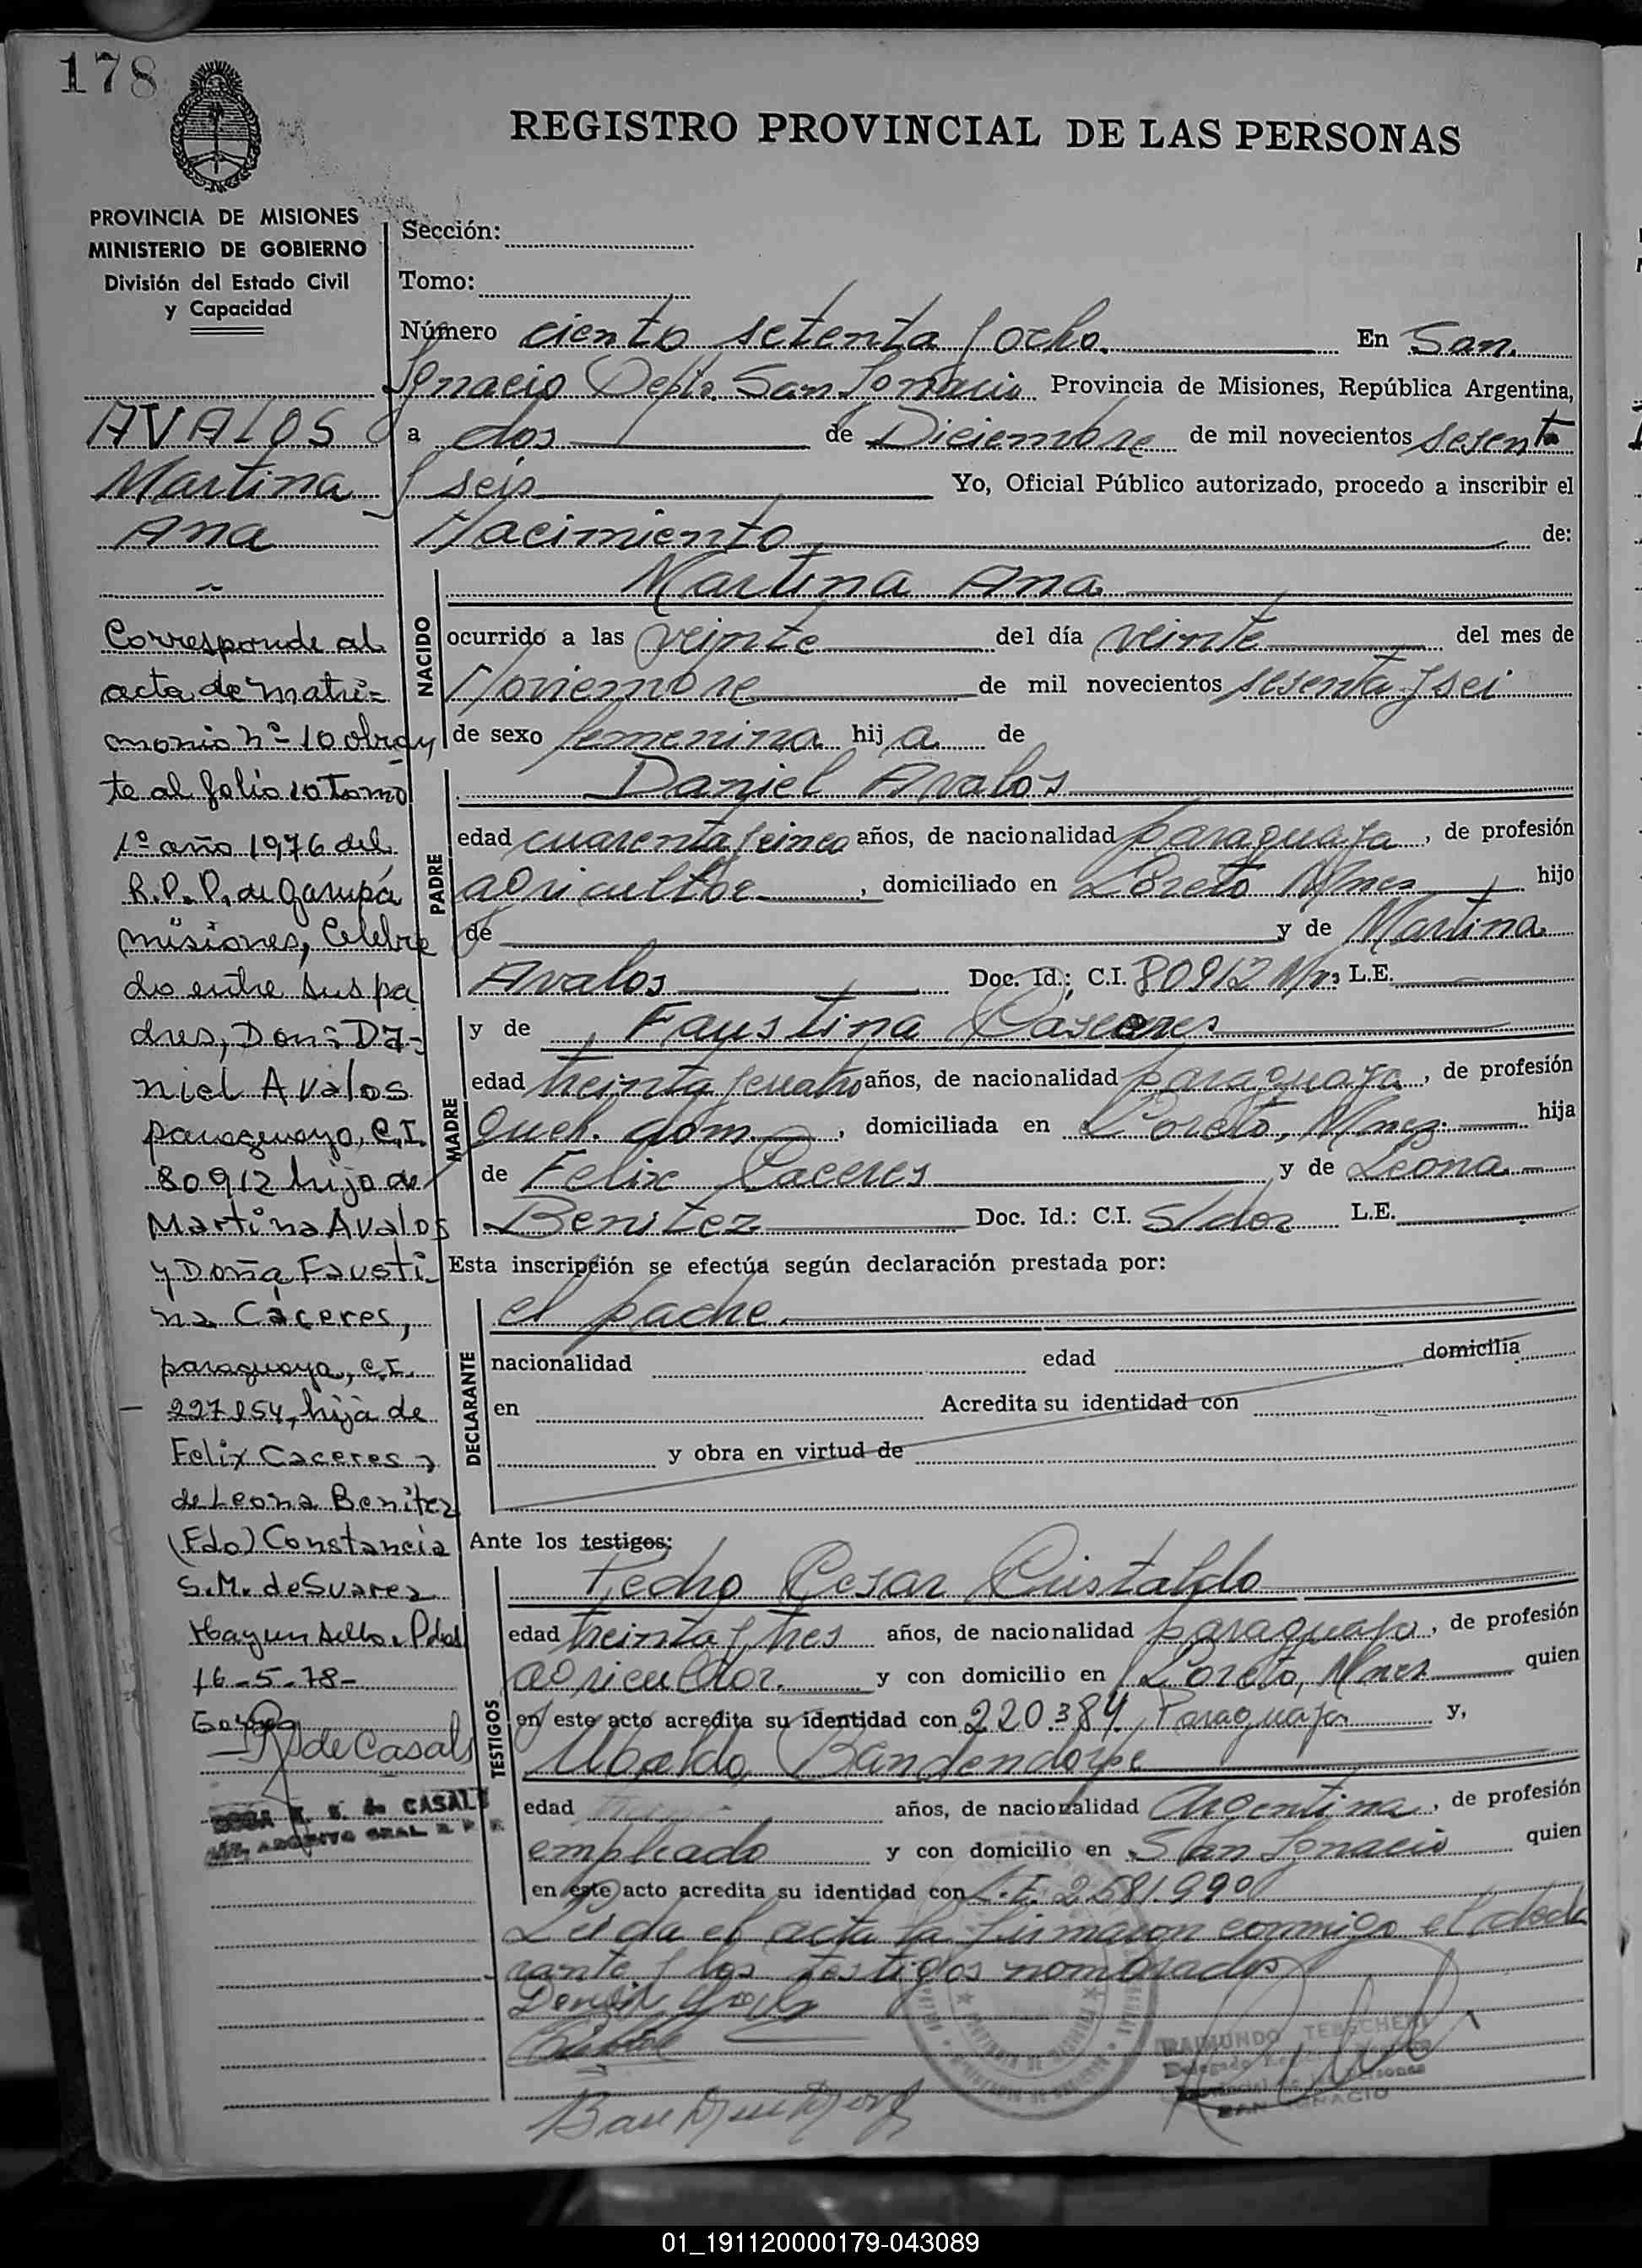 178
REGISTRO PROVINCIAL DE LAS PERSONAS
PROVINCIA DE MISIONES
MINISTERIO DE GOBIERNO
División del Estado Civil
y Capacidad
AVALOS
Martina
Ana
Corresponde al
acta de matri-
monio nº 10 obran
te al folio 10 Tomo
1º año 1976 del
R.P.P. de Garupá
misiones, Celebra
do entre sus pa
dres, Don: Da-
niel Avalos
paraguayo, C.I.
80912 hijo de
Martina Avalos
y Doña Fausti-
na Cáceres,
paraguaya, C.I.
227.854, hija de
Felix Caceres y
de Leona Benitez
(Fdo) Constancia
S.M. de Suarez
Hay un sello. Pdas
16-5-78-
R de Casals
ROSA R. S. de CASALS
ARCHIVO GRAL. R. P. P.
Sección:
Tomo:
Número ciento setenta y ocho. En San
Ignacio Depto. San Ignacio Provincia de Misiones, República Argentina,
a dos de Diciembre de mil novecientos sesenta
y seis Yo, Oficial Público autorizado, procedo a inscribir el
Nacimiento de:
NACIDO
Martina Ana
ocurrido a las veinte del día veinte del mes de
Noviembre de mil novecientos sesenta y sei
de sexo femenina hija de
PADRE
Daniel Avalos
edad cuarenta y cinco años, de nacionalidad paraguaya, de profesión
agricultor, domiciliado en Loreto Mnes hijo
de y de Martina
Avalos Doc. Id.: C.I. 80912 Mns L.E.
MADRE
y de Faustina Caseres
edad treinta y cuatro años, de nacionalidad paraguaya, de profesión
queh. dom., domiciliada en Loreto, Mnes. hija
de Felix Caceres y de Leona
Benitez Doc. Id.: C.I. S/doc L.E.
Esta inscripción se efectúa según declaración prestada por:
DECLARANTE
el padre.
nacionalidad edad domicilia
en Acredita su identidad con
y obra en virtud de
Ante los testigos:
TESTIGOS
Pedro Cesar Cristaldo
edad treinta y tres años, de nacionalidad paraguayo, de profesión
agricultor. y con domicilio en Loreto, Mnes quien
en este acto acredita su identidad con 220.384. Paraguaya y,
Ubaldo Bandendorpe
edad años, de nacionalidad Argentina, de profesión
empleado y con domicilio en San Ignacio quien
en este acto acredita su identidad con L.E. 2.581.990
Leida el acta la firmaron conmigo el decla
rante y los testigos nombrados
RAIMUNDO
SAN IGNACIO
01_191120000179-043089